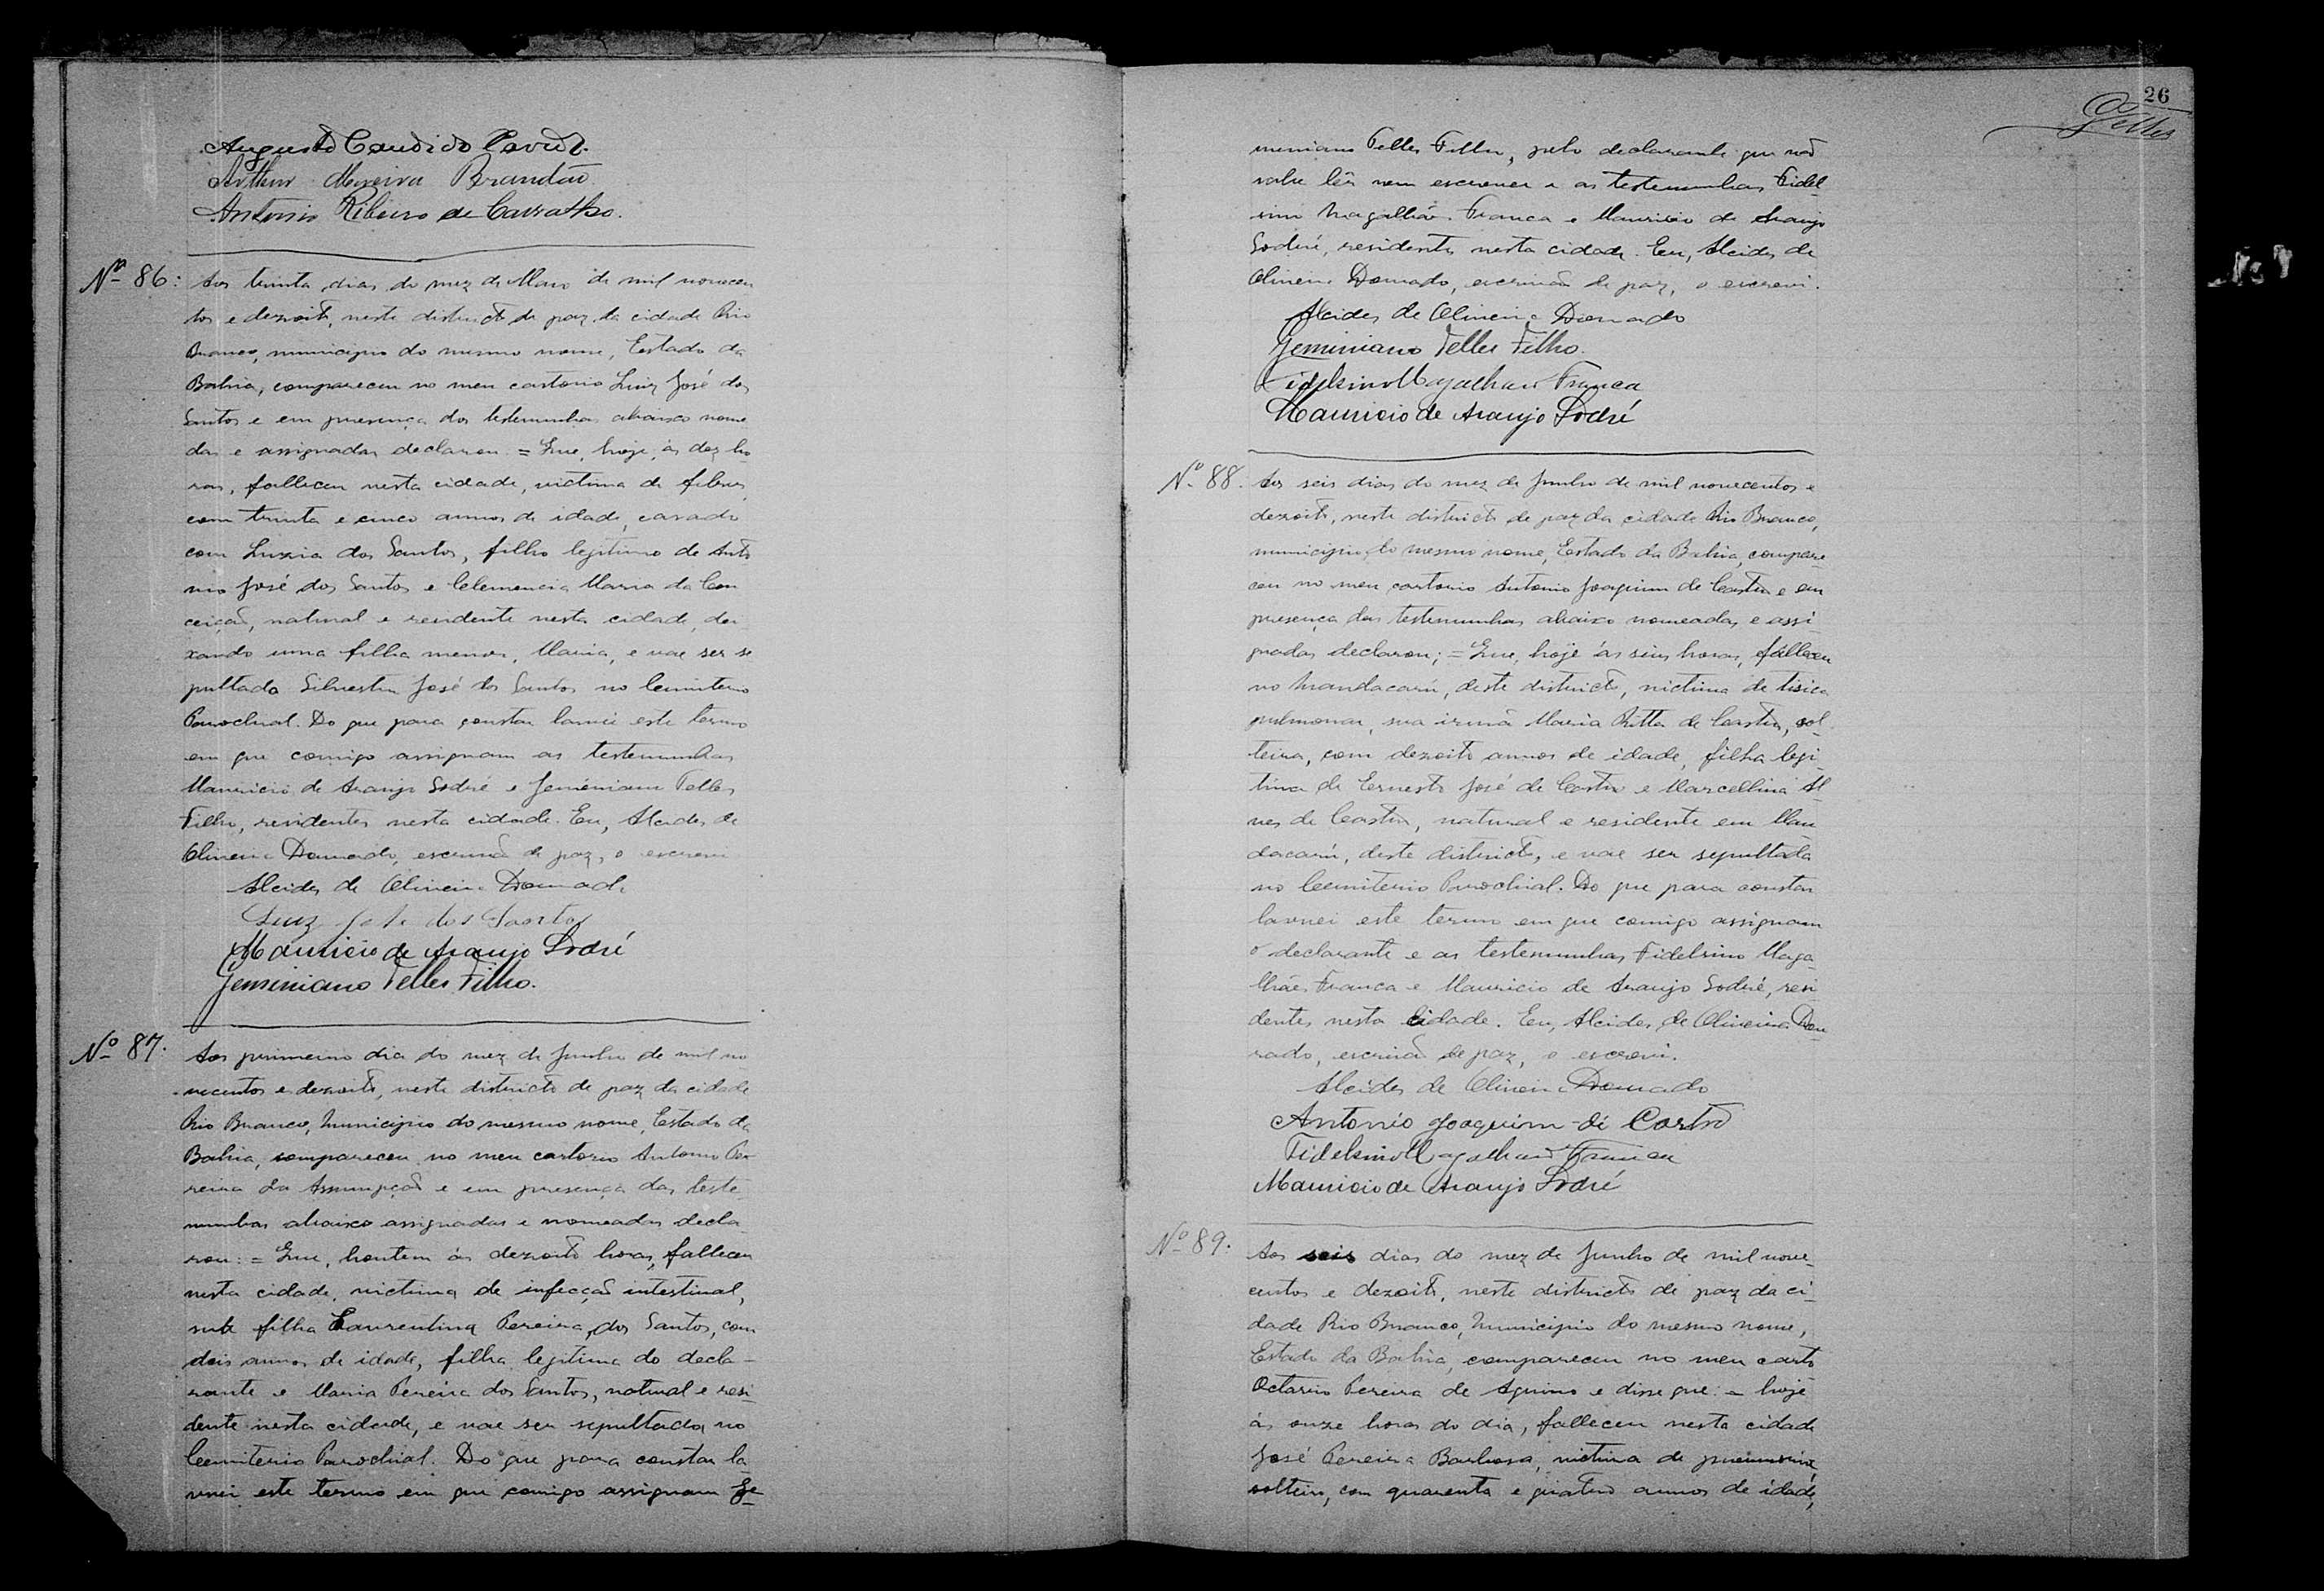 Augusto Candido
Arthur Moreira Brandão
Antonio Ribeiro de Carvalho.
Nº 86:
Aos trinta dias do mez de Maio de mil novecen
tos e dezoito, neste districto de paz da cidade Rio
Branco, municipio do mesmo nome, Estado da
Bahia, compareceu no meu cartorio Luiz José dos
Santos e em presença das testemunhas abaixo nomea
das e assignadas declarou: = Que, hoje, ás dez ho
ras, falleceu nesta cidade, victima de febres,
com trinta e cinco annos de idade, casado
com Luzia dos Santos, filho legitimo de Anto
nio José dos Santos e Clemencia Maria da Con
ceição, natural e residente nesta cidade, dei
xando uma filha menor, Maria, e vae ser se
pultado Silvestre José dos Santos no Cemiterio
Parochial. Do que para constar lavrei este termo
em que comigo assignam as testemunhas
Mauricio de Araujo Sodré e Jeminiano Telles
Filho, residentes nesta cidade. Eu, Alcides de
Oliveira Dourado, escrivão de paz, o escrevi
Alcides de Oliveira Dourado
Luiz José dos Santos
Mauricio de Araujo Sodré
Geminiano Telles Filho.
Nº 87.
Aos primeiro dia do mez de Junho de mil no
vecentos e dezoito, neste districto de paz da cidade
Rio Branco, Municipio do mesmo nome, Estado da
Bahia, compareceu no meu cartorio Antonio Pe
reira da Assumpção e em presença das teste
munhas abaixo assignadas e nomeadas decla
rou: = Que, hontem ás dezoito horas, falleceu
nesta cidade, victima de infecção intestinal,
sua filha Laurentina Pereira dos Santos, com
dois annos de idade, filha legitima do decla-
rante e Maria Pereira dos Santos, natural e resi
dente nesta cidade, e vae ser sepultada no
Cemiterio Parochial. Do que para constar la
vrei este termo em que comigo assignam Je
26
Telles
meniano Telles Filho, pelo declarante que não
sabe lêr nem escrever e as testemunhas Fidel
sino Magalhães Franca e Mauricio de Araujo
Sodré, residentes nesta cidade. Eu, Alcides de
Oliveira Dourado, escrivão de paz, o escrevi.
Alcides de Oliveira Dourado
Geminiano Telles Filho.
Fidelsino Magalhães Franca
Mauricio de Araujo Sodré
Nº 88.
Aos seis dias do mez de Junho de mil novecentos e
dezoito, neste districto de paz da cidade Rio Branco,
municipio do mesmo nome, Estado da Bahia, compare
ceu no meu cartorio Antonio Joaquim de Castro e em
presença das testemunhas abaixo nomeadas e assi-
gnadas declarou; = Que, hoje ás seis horas, falleceu
no Mandacarú, deste districto, victima de tisica
pulmonar, sua irmã Maria Ritta de Castro, sol
teira, com dezoito annos de idade, filha legi-
tima de Ernesto José de Castro e Marcellina Al
ves de Castro, natural e residente em Man
dacarú, deste districto, e vae ser sepultada
no Cemiterio Parochial. Do que para constar
lavrei este termo em que comigo assignam
o declarante e as testemunhas Fidelsino Maga-
lhães Franca e Mauricio de Araujo Sodré, resi
dentes nesta cidade. Eu, Alcides de Oliveira Dou
rado, escrivão de paz, o escrevi.
Alcides de Oliveira Dourado
Antonio Joaquim de Castro
Fidelsino Magalhães Franca
Mauricio de Araujo Sodré
Nº 89.
Aos seis dias do mez de Junho de mil nove-
centos e dezoito, neste districto de paz da ci-
dade Rio Branco, Municipio do mesmo nome,
Estado da Bahia, compareceu no meu carto
Octavio Pereira de Aquino e disse que: = hoje
ás onze horas do dia, falleceu nesta cidade
José Pereira Barbosa, victima de pneumonia,
solteiro, com quarenta e quatro annos de idade,